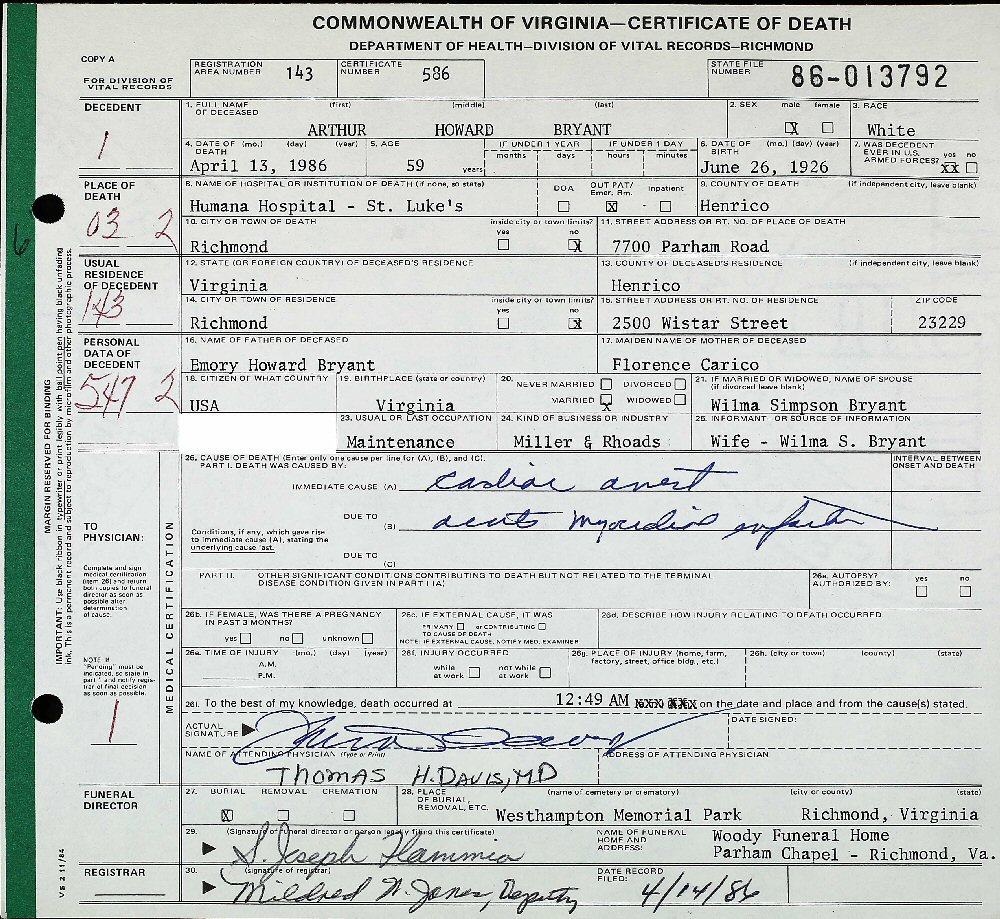 COMMONWEALTH OF VIRGINIA—CERTIFICATE OF DEATH
DEPARTMENT OF HEALTH—DIVISION OF VITAL RECORDS—RICHMOND
COPY A
FOR DIVISION OF VITAL RECORDS
REGISTRATION AREA NUMBER 143
CERTIFICATE NUMBER 586
STATE FILE NUMBER 86-013792
DECEDENT
1
1. FULL NAME OF DECEASED (first) (middle) (last)
ARTHUR HOWARD BRYANT
2. SEX male female
X
3. RACE
White
4. DATE OF DEATH (mo.) (day) (year)
April 13, 1986
5. AGE
59 years
IF UNDER 1 YEAR months days
IF UNDER 1 DAY hours minutes
6. DATE OF BIRTH (mo.) (day) (year)
June 26, 1926
7. WAS DECEDENT EVER IN U.S. ARMED FORCES? yes no
XX
PLACE OF DEATH
03 2
8. NAME OF HOSPITAL OR INSTITUTION OF DEATH (if none, so state)
Humana Hospital - St. Luke's
DOA OUT PAT/ Emer. Rm. Inpatient
X
9. COUNTY OF DEATH (if independent city, leave blank)
Henrico
10. CITY OR TOWN OF DEATH inside city or town limits? yes no
Richmond X
11. STREET ADDRESS OR RT. NO. OF PLACE OF DEATH
7700 Parham Road
USUAL RESIDENCE OF DECEDENT
143
12. STATE (OR FOREIGN COUNTRY) OF DECEASED'S RESIDENCE
Virginia
13. COUNTY OF DECEASED'S RESIDENCE (if independent city, leave blank)
Henrico
14. CITY OR TOWN OF RESIDENCE inside city or town limits? yes no
Richmond X
15. STREET ADDRESS OR RT. NO. OF RESIDENCE ZIP CODE
2500 Wistar Street 23229
PERSONAL DATA OF DECEDENT
547 2
16. NAME OF FATHER OF DECEASED
Emory Howard Bryant
17. MAIDEN NAME OF MOTHER OF DECEASED
Florence Carico
18. CITIZEN OF WHAT COUNTRY
USA
19. BIRTHPLACE (state or country)
Virginia
20. NEVER MARRIED DIVORCED
MARRIED WIDOWED
X
21. IF MARRIED OR WIDOWED, NAME OF SPOUSE (if divorced leave blank)
Wilma Simpson Bryant
23. USUAL OR LAST OCCUPATION
Maintenance
24. KIND OF BUSINESS OR INDUSTRY
Miller & Rhoads
25. INFORMANT OR SOURCE OF INFORMATION
Wife - Wilma S. Bryant
MARGIN RESERVED FOR BINDING
IMPORTANT: Use black ribbon in typewriter or print legibly with ball point pen having black unfading
ink. This is a permanent record and subject to reproduction by microfilm and other photographic process.
TO PHYSICIAN:
Complete and sign medical certification (item 26) and return both copies to funeral director as soon as possible after determination of cause.
NOTE If "Pending" must be indicated, so state in part 1 and notify registrar of final decision as soon as possible.
1
MEDICAL CERTIFICATION
26. CAUSE OF DEATH (Enter only one cause per line for (A), (B), and (C).
PART I. DEATH WAS CAUSED BY:
INTERVAL BETWEEN ONSET AND DEATH
IMMEDIATE CAUSE (A) cardiac arrest
DUE TO (B) acute myocardial infarction
Conditions, if any, which gave rise to immediate cause (A), stating the underlying cause last.
DUE TO (C)
PART II. OTHER SIGNIFICANT CONDITIONS CONTRIBUTING TO DEATH BUT NOT RELATED TO THE TERMINAL DISEASE CONDITION GIVEN IN PART I (A)
26a. AUTOPSY? AUTHORIZED BY: yes no
26b. IF FEMALE, WAS THERE A PREGNANCY IN PAST 3 MONTHS?
yes no unknown
26c. IF EXTERNAL CAUSE, IT WAS
PRIMARY or CONTRIBUTING
TO CAUSE OF DEATH
NOTE: IF EXTERNAL CAUSE, NOTIFY MED. EXAMINER
26d. DESCRIBE HOW INJURY RELATING TO DEATH OCCURRED
26e. TIME OF INJURY (mo.) (day) (year)
A.M.
P.M.
26f. INJURY OCCURRED
while at work not while at work
26g. PLACE OF INJURY (home, farm, factory, street, office bldg., etc.)
26h. (city or town) (county) (state)
26i. To the best of my knowledge, death occurred at 12:49 AM on the date and place and from the cause(s) stated.
ACTUAL SIGNATURE
DATE SIGNED:
NAME OF ATTENDING PHYSICIAN (Type or Print)
THOMAS H. DAVIS, MD
ADDRESS OF ATTENDING PHYSICIAN
FUNERAL DIRECTOR
27. BURIAL REMOVAL CREMATION
X
28. PLACE OF BURIAL, REMOVAL, ETC. (name of cemetery or crematory) (city or county) (state)
Westhampton Memorial Park Richmond, Virginia
29. (Signature of funeral director or person legally filing this certificate)
S. Joseph Flammia
NAME OF FUNERAL HOME AND ADDRESS:
Woody Funeral Home
Parham Chapel - Richmond, Va.
REGISTRAR
30. (signature of registrar)
Mildred W. Jones, Deputy
DATE RECORD FILED: 4/14/86
VS 2 11/84